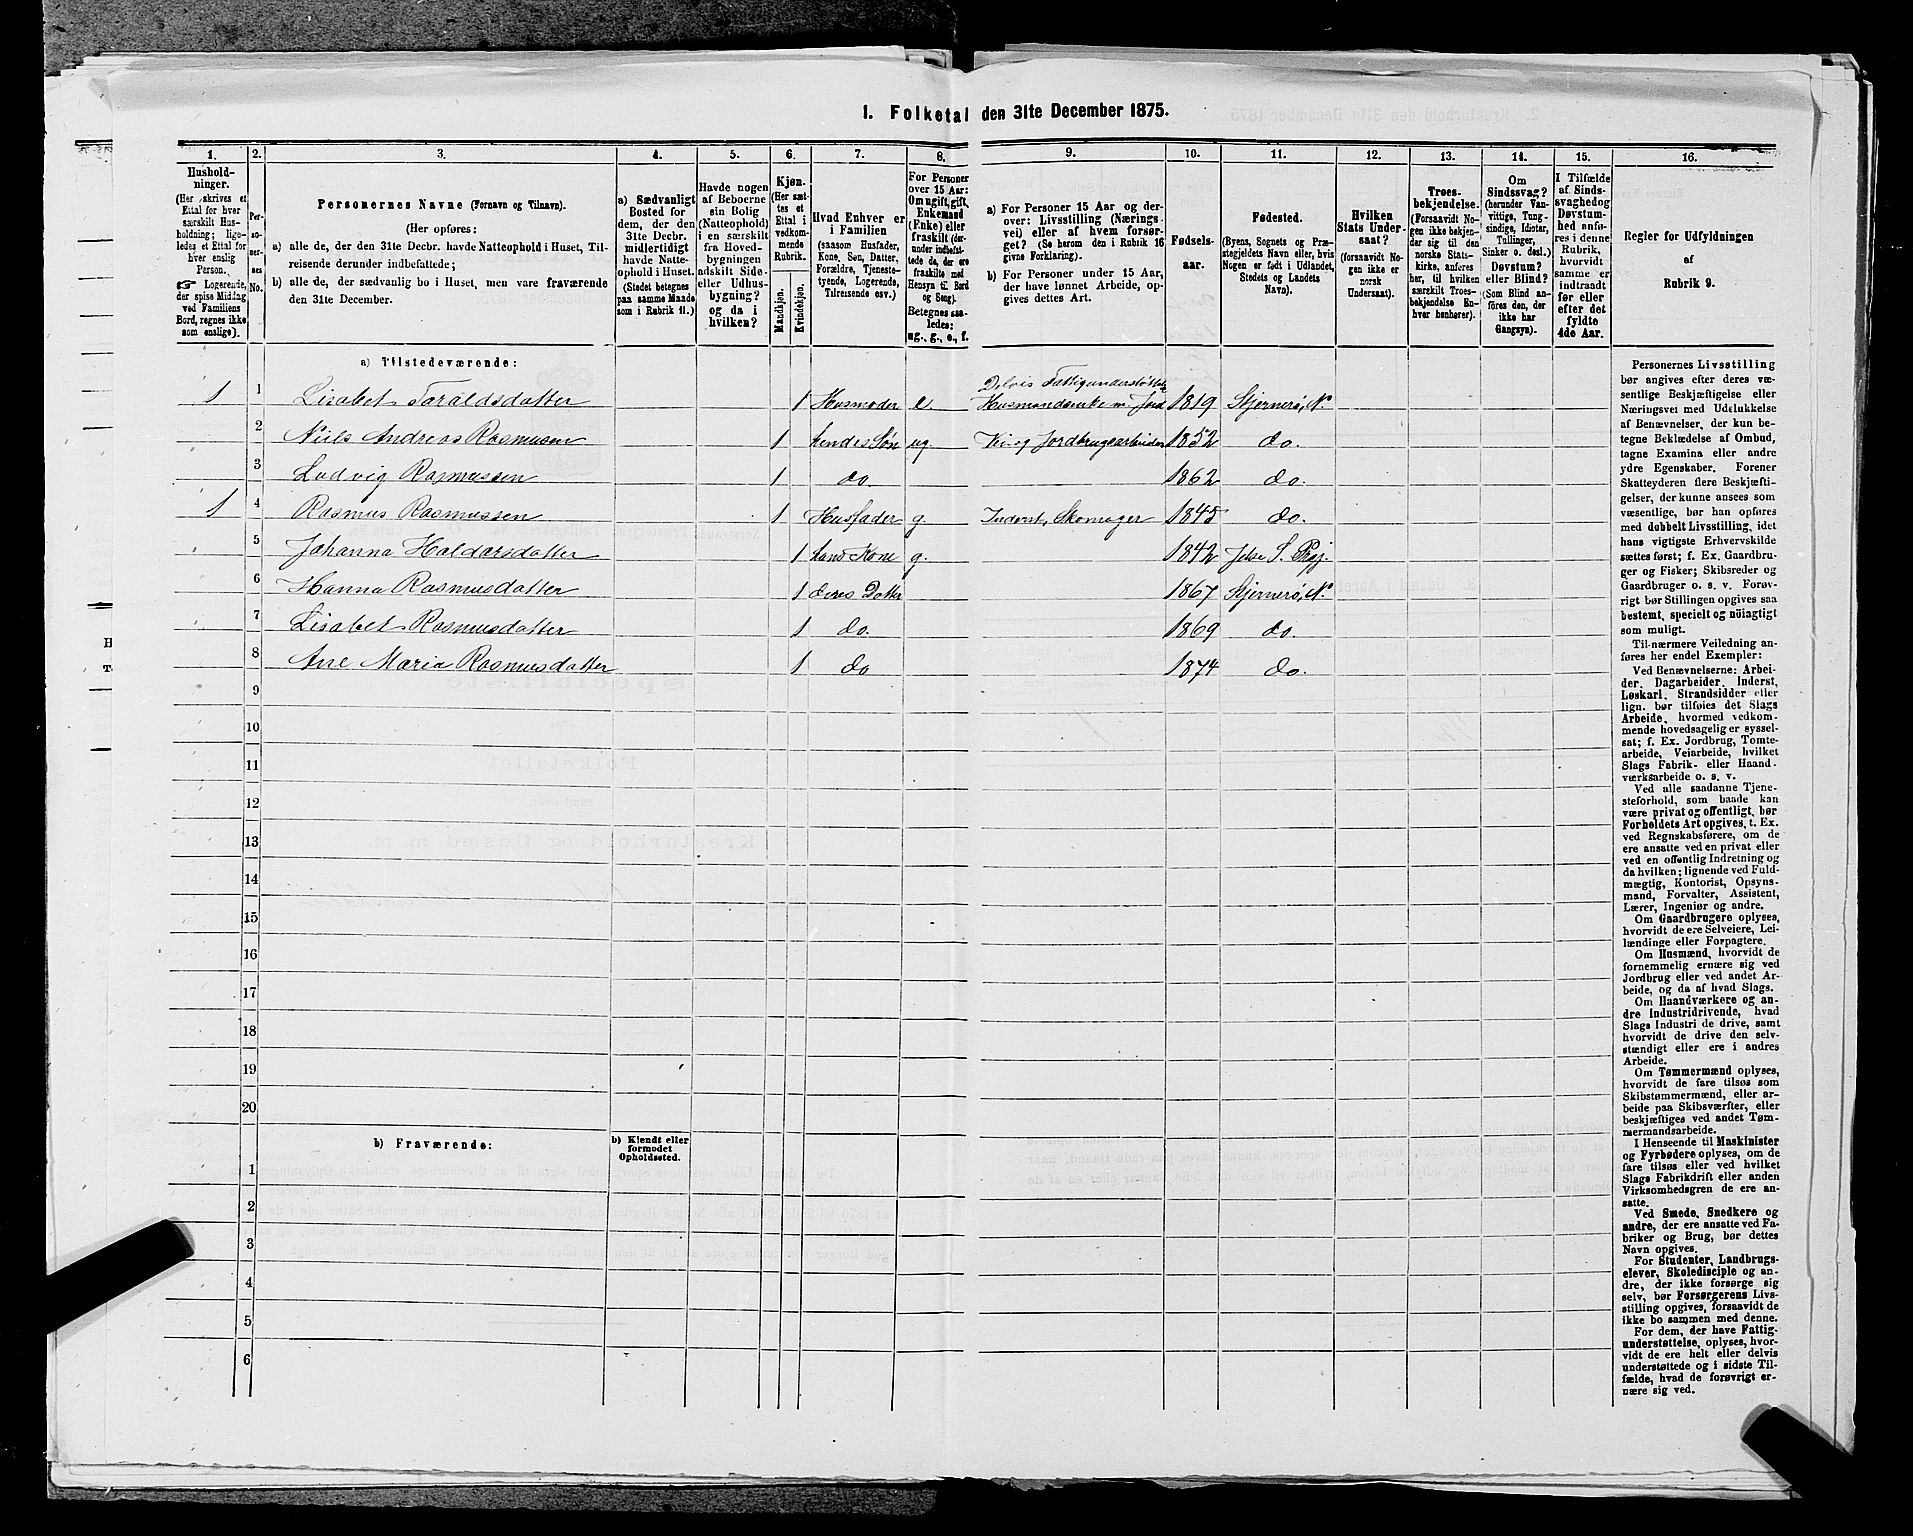 1. Folketal den 31te December 1875.
1. 2. 3. 4. 5. 6. 7. 8. 9. 10. 11. 12. 13. 14. 15. 16.
Hushold-
ninger.
(Her skrives et
Ettal for hver
særskilt Hus-
holdning; lige-
ledes et Ettal for
hver enslig
Person.
☞ Logerende,
der spise Middag
ved Familiens
Bord, regnes ikke
som enslige).
Per-
so-
ner-
nes
No.
Personernes Navne (Fornavn og Tilnavn).
(Her opføres:
a) alle de, der den 31te Decbr. havde Natteophold i Huset, Til-
reisende derunder indbefattede;
b) alle de, der sædvanlig bo i Huset, men vare fraværende
den 31te December.
a) Sædvanligt
Bosted for
dem, der den
31te Decbr.
midlertidigt
havde Natte-
ophold i Huset.
(Stedet betegnes
paa samme Maade
som i Rubrik 11.)
Havde nogen
af Beboerne
sin Bolig
(Natteophold)
i en særskilt
fra Hoved-
bygningen
adskilt Side-
eller Udhus-
bygning?
og da i
hvilken?
Kjøn.
(Her sæt-
tes et
Ettal i
vedkom-
mende
Rubrik.
Mandkjøn.
Kvindekjøn.
Hvad Enhver er
i Familien
(saasom Husfader,
Kone, Søn, Datter,
Forældre, Tjeneste-
tyende, Logerende,
Tilreisende osv.)
For Personer
over 15 Aar:
Om ugift, gift,
Enkemand
(Enke) eller
fraskilt (der-
under indbefat-
tede de, der ere
fraskilte med
Hensyn til Bord
og Seng).
Betegnes saa-
ledes:
ug., g., e., f.
a) For Personer 15 Aar og der-
over: Livsstilling (Nærings-
vei) eller af hvem forsør-
get? (Se herom den i Rubrik 16
givne Forklaring).
b) For Personer under 15 Aar,
der have lønnet Arbeide, op-
gives dettes Art.
Fødsels-
aar.
Fødested.
(Byens, Sognets og Præ-
stegjeldets Navn eller, hvis
Nogen er født i Udlandet,
Stedets og Landets
Navn).
Hvilken
Stats Under-
saat?
(forsaavidt No-
gen ikke er
norsk
Undersaat).
Troes-
bekjendelse.
(Forsaavidt No-
gen ikke bekjen-
der sig til den
norske Stats-
kirke, anføres
her, til hvilken
særskilt Troes-
bekjendelse En-
hver henhører).
Om
Sindssvag?
(herunder Van-
vittige, Tung-
sindige, Idioter,
Tullinger,
Sinker o. desl.)
Døvstum?
eller Blind?
(Som Blind an-
føres den, der
ikke har
Gangsyn).
I Tilfælde
af Sinds-
svaghed og
Døvstum-
hed anfø-
res i denne
Rubrik,
hvorvidt
samme er
indtraadt
før eller
efter det
fyldte
4de Aar.
Regler for Udfyldningen
af
Rubrik 9.
a) Tilstedeværende:
1 1 Lisabet Taraldsdatter 1 Husmoder e. Delvis Fattigunderstøttet Husmandsenke m. Jord 1819 Sjernerø, N.
2 Niels Andreas Rasmusen 1 hendes Søn ug. Vei- og Jordbrugsarbeider 1852 do.
3 Ludvig Rasmussen 1 do. 1862 do.
1 4 Rasmus Rasmussen 1 Husfader g. Inderst, Skomager 1845 do.
5 Johanna Haldorsdatter 1 hans Kone g. 1842 Jelse S. Prgj.
6 Hanna Rasmusdatter 1 deres Datter 1867 Sjernerø, N.
7 Lisabet Rasmusdatter 1 do. 1869 do.
8 Ane Maria Rasmusdatter 1 do 1874 do.
9
10
11
12
13
14
15
16
17
18
19
20
b) Fraværende:
b) Kjendt eller
formodet
Opholdssted.
1
2
3
4
5
6
Personernes Livsstilling
bør angives efter deres væ-
sentlige Beskjæftigelse eller
Næringsvei med Udelukkelse
af Benævnelser, der kun be-
tegne Beklædelse af Ombud,
tagne Examina eller andre
ydre Egenskaber. Forener
Skatteyderen flere Beskjæfti-
gelser, der kunne ansees som
væsentlige, bør han opføres
med dobbelt Livsstilling, idet
hans vigtigste Erhvervskilde
sættes først; f. Ex. Gaardbru-
ger og Fisker; Skibsreder og
Gaardbruger o. s. v. Forøv-
rigt bør Stillingen opgives saa
bestemt, specielt og nöiagtigt
som muligt.
Til nærmere Veiledning an-
føres her endel Exempler:
Ved Benævnelserne: Arbei-
der, Dagarbeider, Inderst,
Løskarl, Strandsidder eller
lign. bør tilføies det Slags
Arbeide, hvormed vedkom-
mende hovedsagelig er syssel-
sat; f. Ex. Jordbrug, Tomte-
arbeide, Veiarbeide, hvilket
Slags Fabrik- eller Haand-
værksarbeide o. s. v.
Ved alle saadanne Tjene-
steforhold, som baade kan
være privat og offentligt, bør
Forholdets Art opgives, t. Ex.
ved Regnskabsførere, om de
ere ansatte ved en privat eller
ved en offentlig Indretning og
da hvilken; lignende ved Fuld-
mægtig, Kontorist, Opsyns-
mand, Forvalter, Assistent,
Lærer, Ingeniør og andre.
Om Gaardbrugere oplyses,
hvorvidt de ere Selveiere, Lei-
lændinge eller Forpagtere.
Om Husmænd, hvorvidt de
fornemmelig ernære sig ved
Jordbrug eller ved andet Ar-
beide, og da af hvad Slags.
Om Haandværkere og an-
dre Industridrivende, hvad
Slags Industri de drive, samt
hvorvidt de drive den selv-
stændigt eller ere i andres
Arbeide.
Om Tømmermænd oplyses,
hvorvidt de fare tilsøs som
Skibstømmermænd, eller ar-
beide paa Skibsværfter, eller
beskjæftiges ved andet Tøm-
mermandsarbeide.
I Henseende til Maskinister
og Fyrbødere oplyses, om de
fare tilsøs eller ved hvilket
Slags Fabrikdrift eller anden
Virksomhedsgren de ere an-
satte.
Ved Smede, Snedkere og
andre, der ere ansatte ved Fa-
briker og Brug, bør dettes
Navn opgives.
For Studenter, Landbrugs-
elever, Skoledisciple og an-
dre, der ikke forsørge sig
selv, bør Forsørgerens Livs-
stilling opgives, forsaavidt de
ikke bo sammen med denne.
For dem, der have Fattig-
understøttelse, oplyses, hvor-
vidt de ere helt eller delvis
understøttede og i sidste Til-
fælde, hvad de forøvrigt er-
nære sig ved.